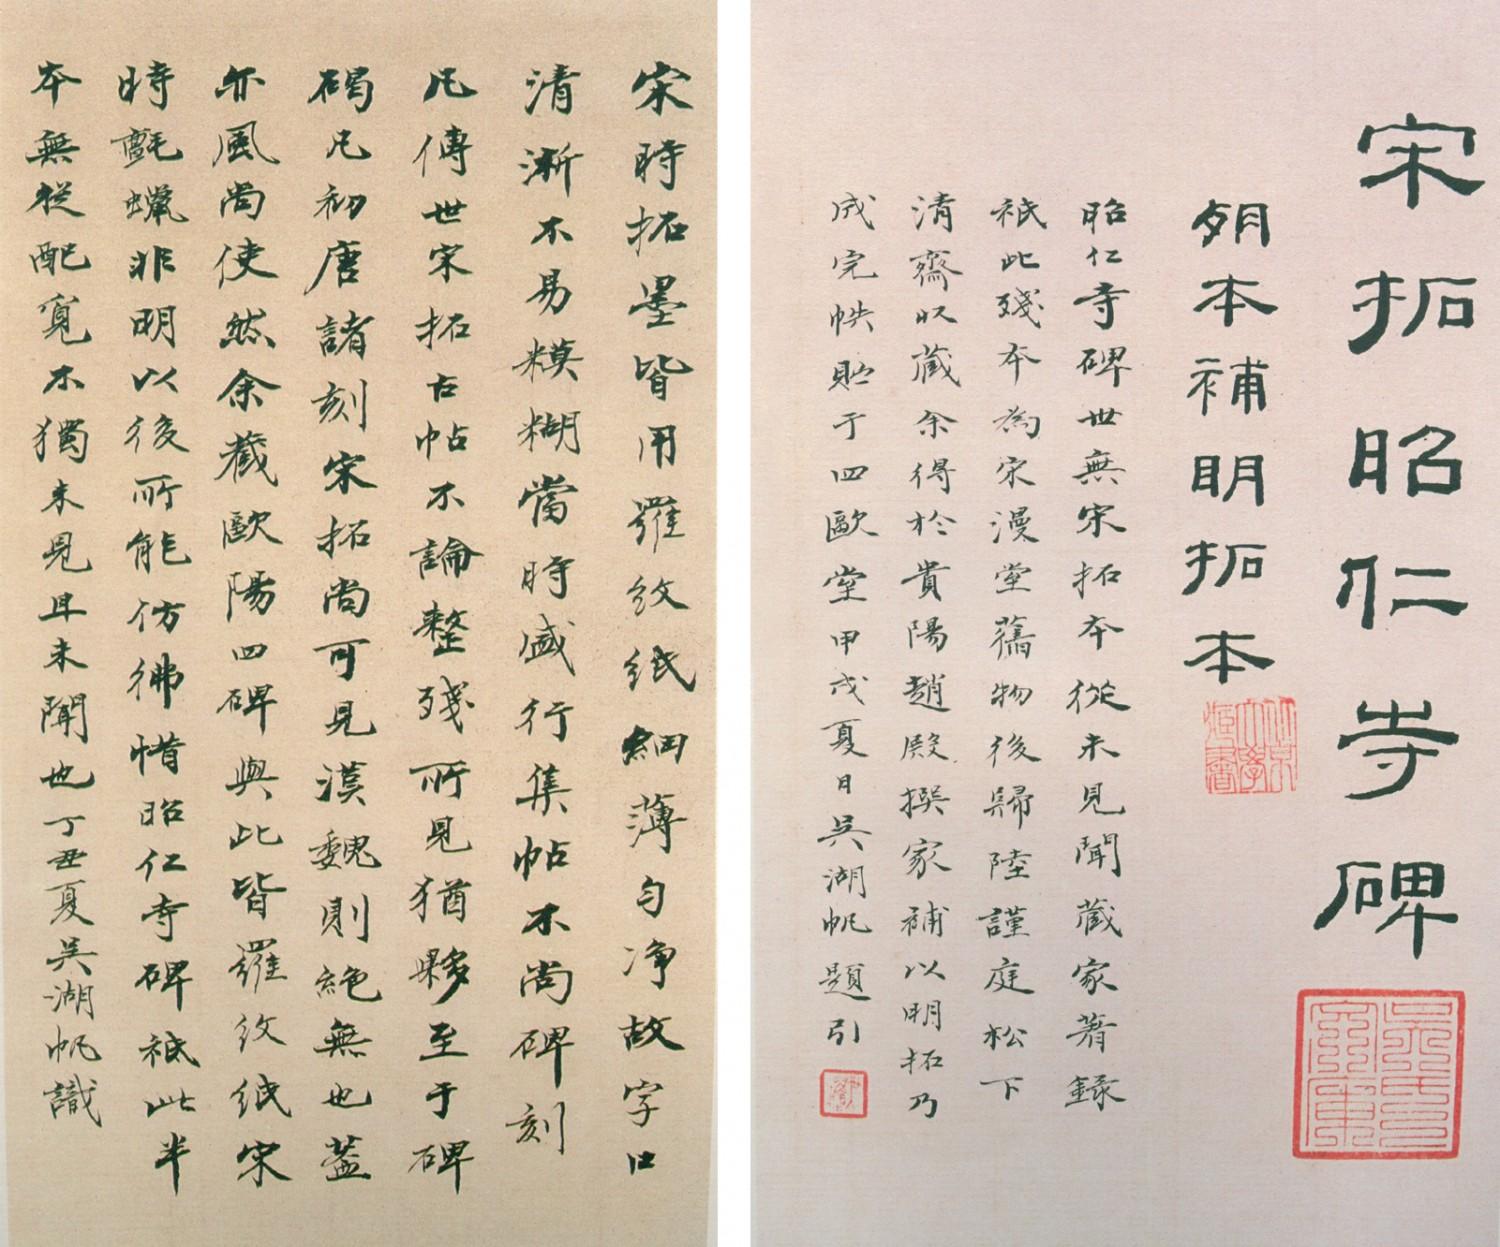 宋拓昭仁寺碑
殘本補明拓本
昭仁寺碑世無宋拓本從未見聞藏家著錄
祇此殘本為宋漫堂舊物後歸陸謹庭松下
清齋收藏余得於貴陽趙殿撰家補以明拓乃
成完帙貯于四歐堂甲戌夏日吳湖帆題引
宋時拓墨皆用羅紋紙細薄匀净故字口
清漸不易糢糊當時盛行集帖不尚碑刻
凡傳世宋拓古帖不論整殘所見猶夥至于碑
碣凡初唐諸刻宋拓尚可見漢魏則絕無也蓋
亦風尚使然余藏歐陽四碑與此皆羅紋紙宋
時氈蠟非明以後所能仿彿惜昭仁寺碑祇此半
本無從配覓不獨未見且未聞也丁丑夏吳湖帆識